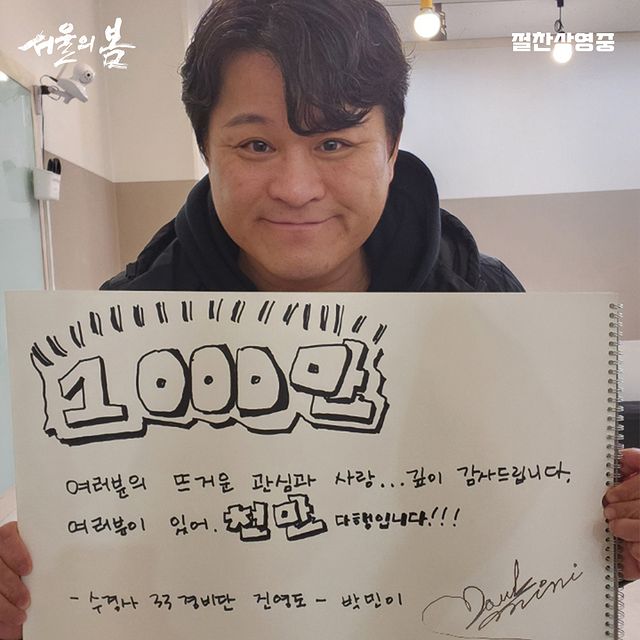 서울의 봄
절찬상영중
1000만
여러분의 뜨거운 관심과 사랑... 깊이 감사드립니다.
여러분이 있어. 천만 다행입니다!!!
- 수경사 33경비단 전영도 - 박민이